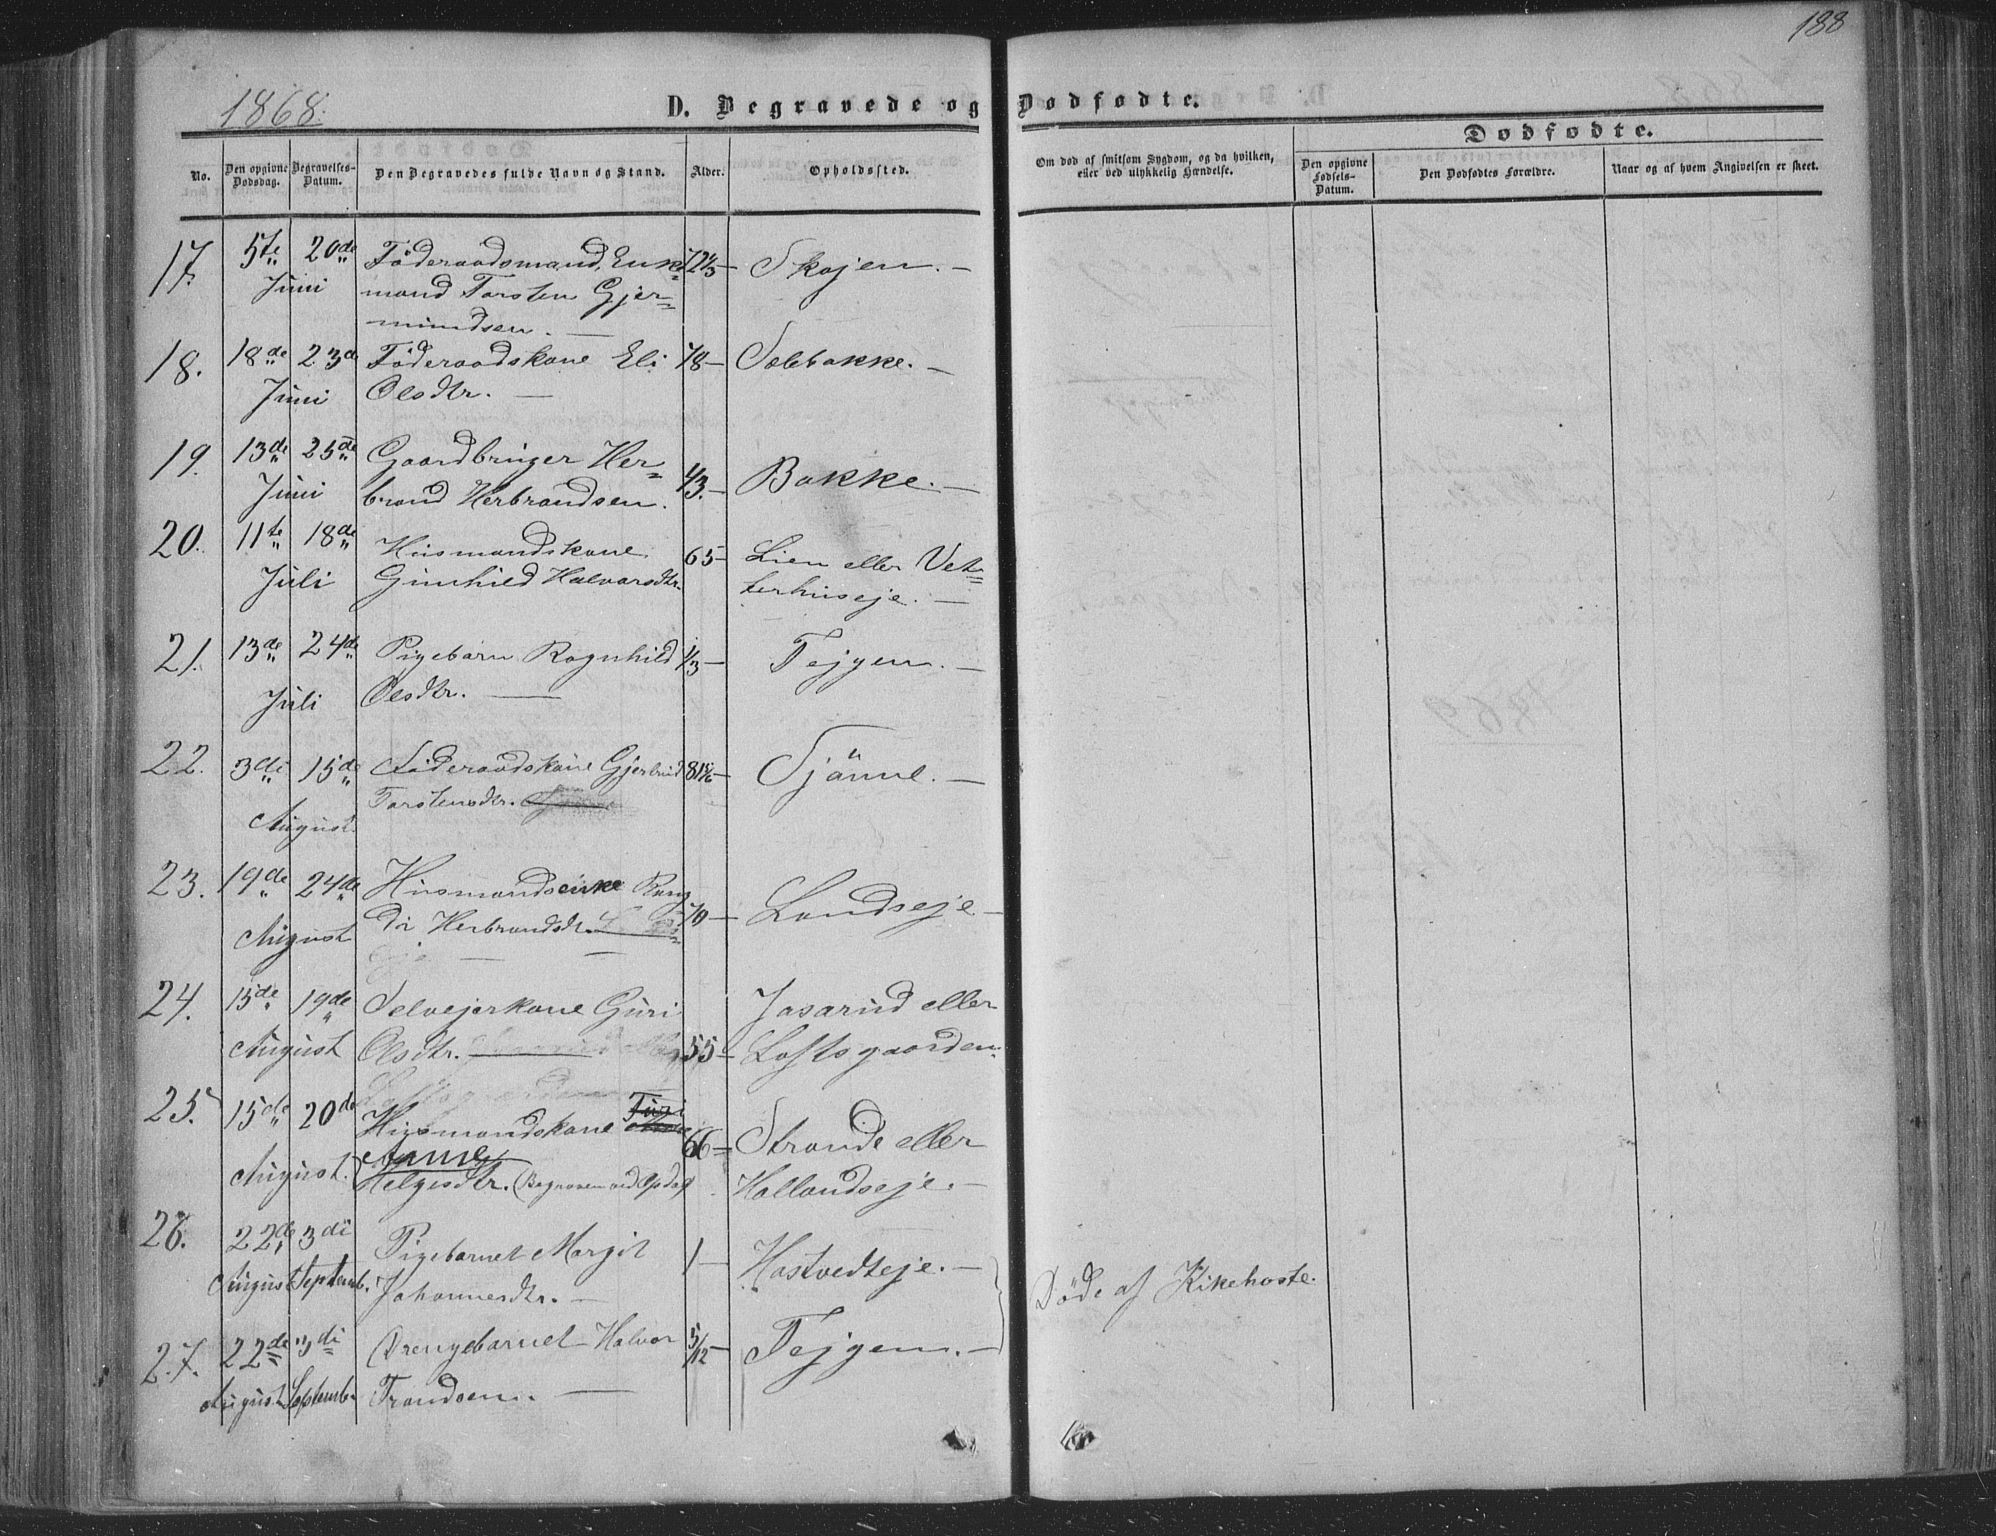 188
1868.
D. Begravede og Dødfødte.
Dødfødte.
No.
Den opgivne Dødsdag.
Begravelses-Datum.
Den Begravedes fulde Navn og Stand.
Alder.
Opholdssted.
Om død af smitsom Sygdom, og da hvilken,
eller ved ulykkelig Hændelse.
Den opgivne Fødsels-Datum.
Den Dødfødtes Forældre.
Naar og af hvem Angivelsen er skeet.
17. 5te 20de Föderaadsmand, Enk= 72 Skojen. —
Juni mand Torsten Gjer=
mundsen. —
18. 18de 23de Föderaadskone Eli 78 — Solebakke. —
Juni Olsdtr. —
19. 13de 25de Gaardbruger Her= 43. — Bakke. —
Juni brand Herbrandsen.
20. 11te 18de Husmandskone 65 — Lien eller Vet=
Juli Gunhild Halvorsdtr. terhuseje. —
21. 13de 24de Pigebarn Ragnhild 1/3 — Tejgen. —
Juli Olsdtr. —
22. 3die 15de Föderaadskone Gjertrud 81 — Tjönne. —
August. Torstensdtr.
23. 19de 24de Husmandsenke Rang 70 — Landseje —
August di Herbrandsdtr.
24. 15de 19de Selvejerkone Guri Jasarud eller
August Olsdtr. 55 — Loftsgaarden.
25. 15de 20de Husmandskone Turi 66 — Strande eller
Anne
August. Helgesdtr. (Begraven ved Opdal) Hallandseje. —
26. 22de 3di Pigebarnet Margit 1 — Hastvedteje. —
August Septemb. Johannesdtr. — Döde af Kikehoste.
27. 22de 3di Drengebarnet Halvor 5/12 — Tejgen. —
August Septemb. Trondsen. —